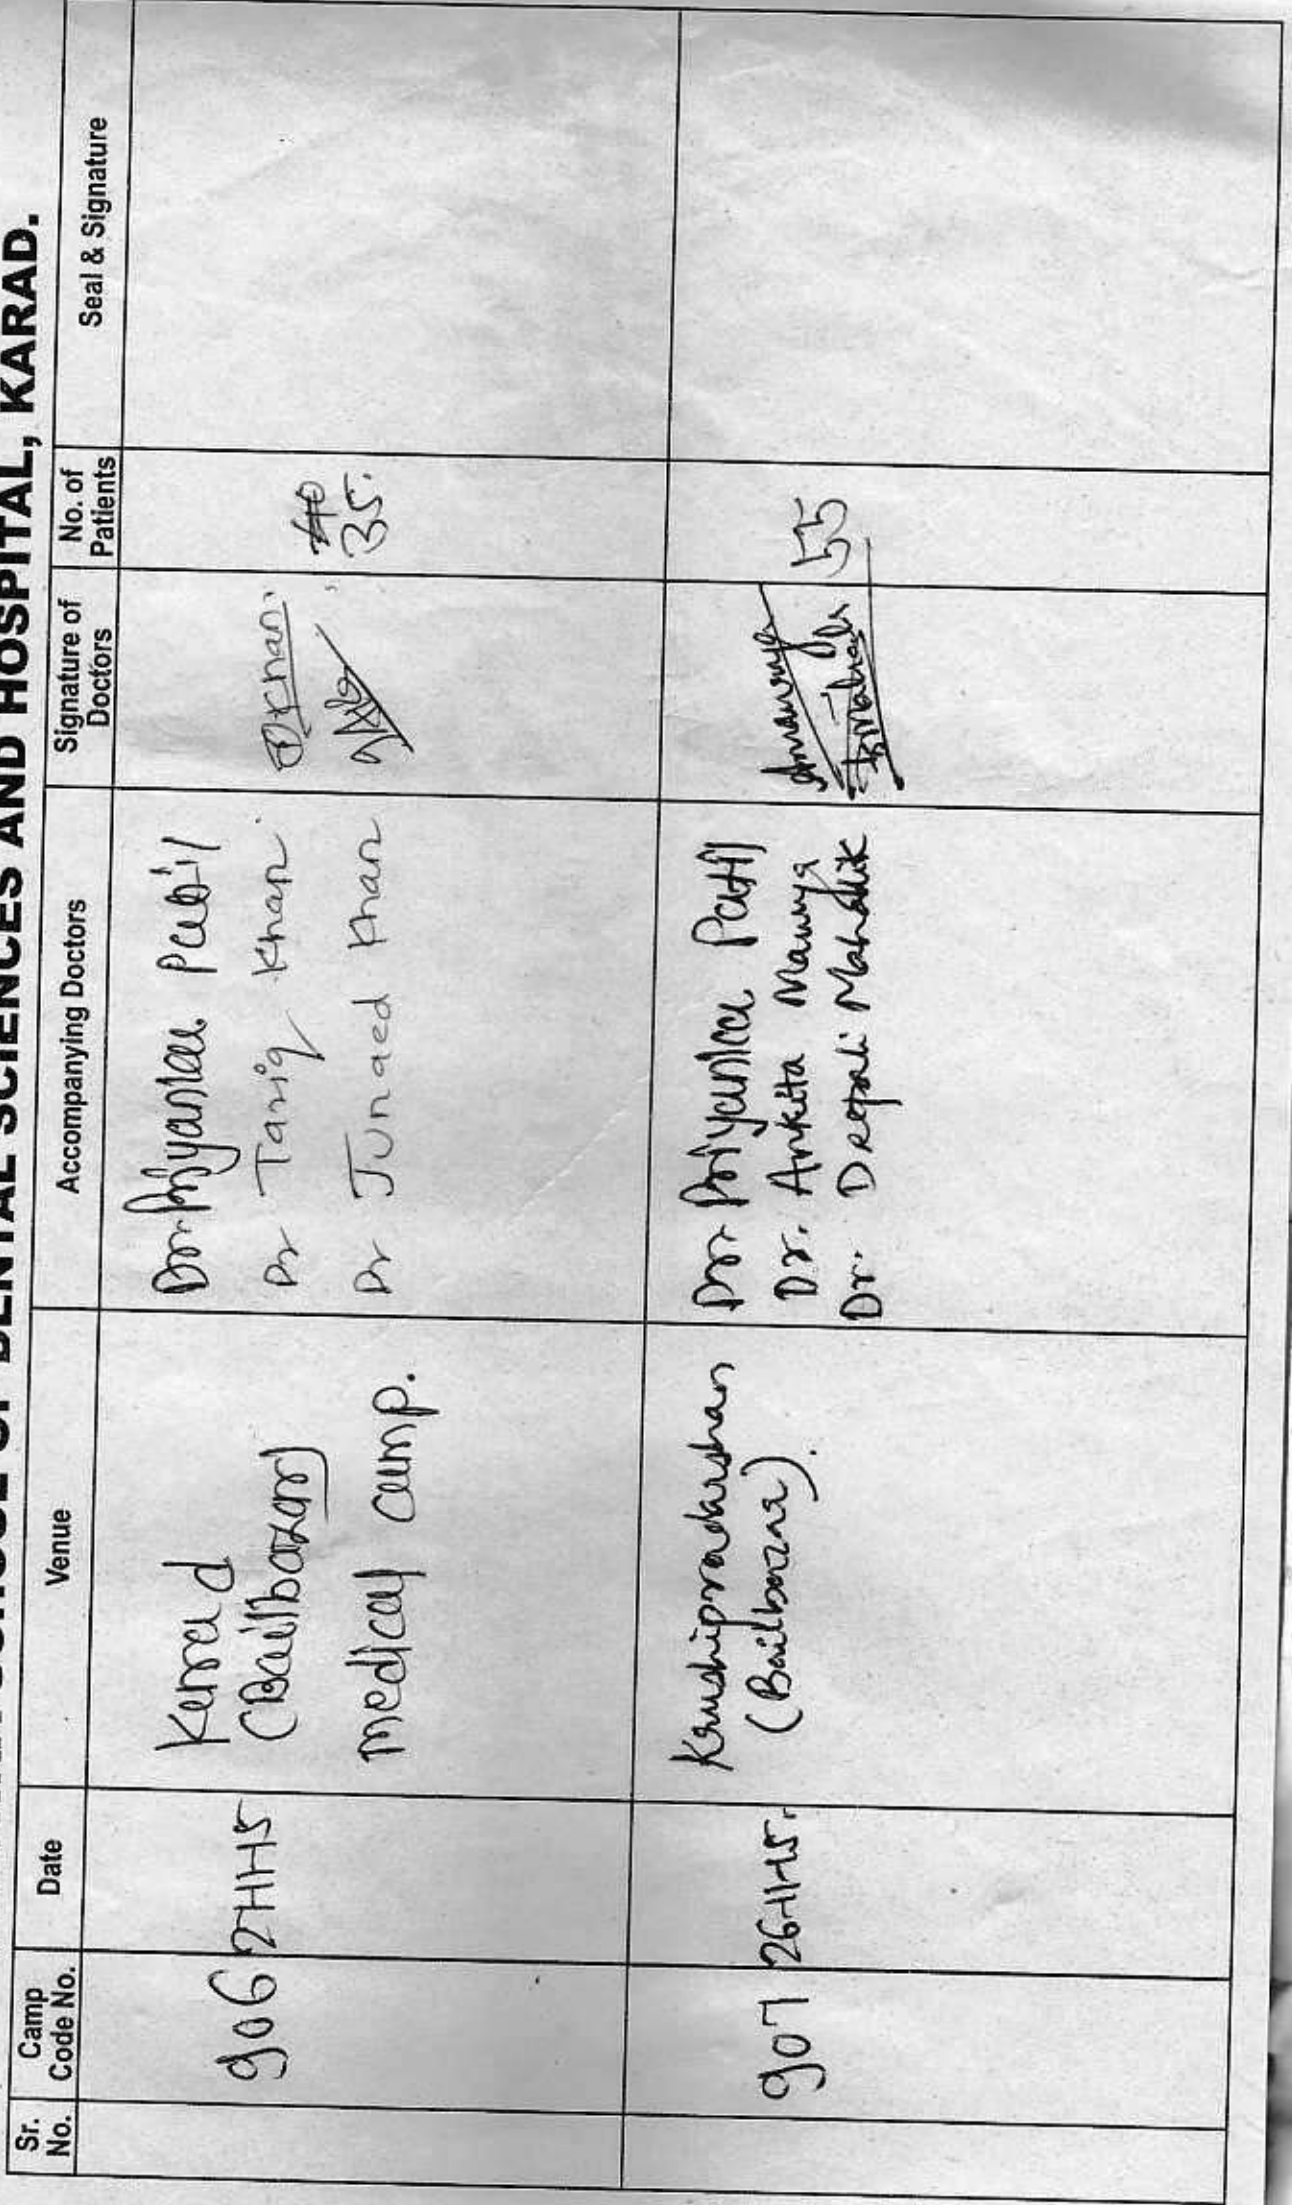 SCHOOL OF DENTAL SCIENCES AND HOSPITAL, KARAD.
Sr. No.
Camp Code No.
Date
Venue
Accompanying Doctors
Signature of Doctors
No. of Patients
Seal & Signature
906
Karad
(Bailbazar)
medical camp.
Dr Priyanka Patil
Dr Tariq Khan
Dr Junaed Khan
35.
907
26-11-15.
Krushipradarshan
(Bailbazar).
Dr Priyanka Patil
Dr. Ankita Maurya
Dr. Deepali Mahadik
55